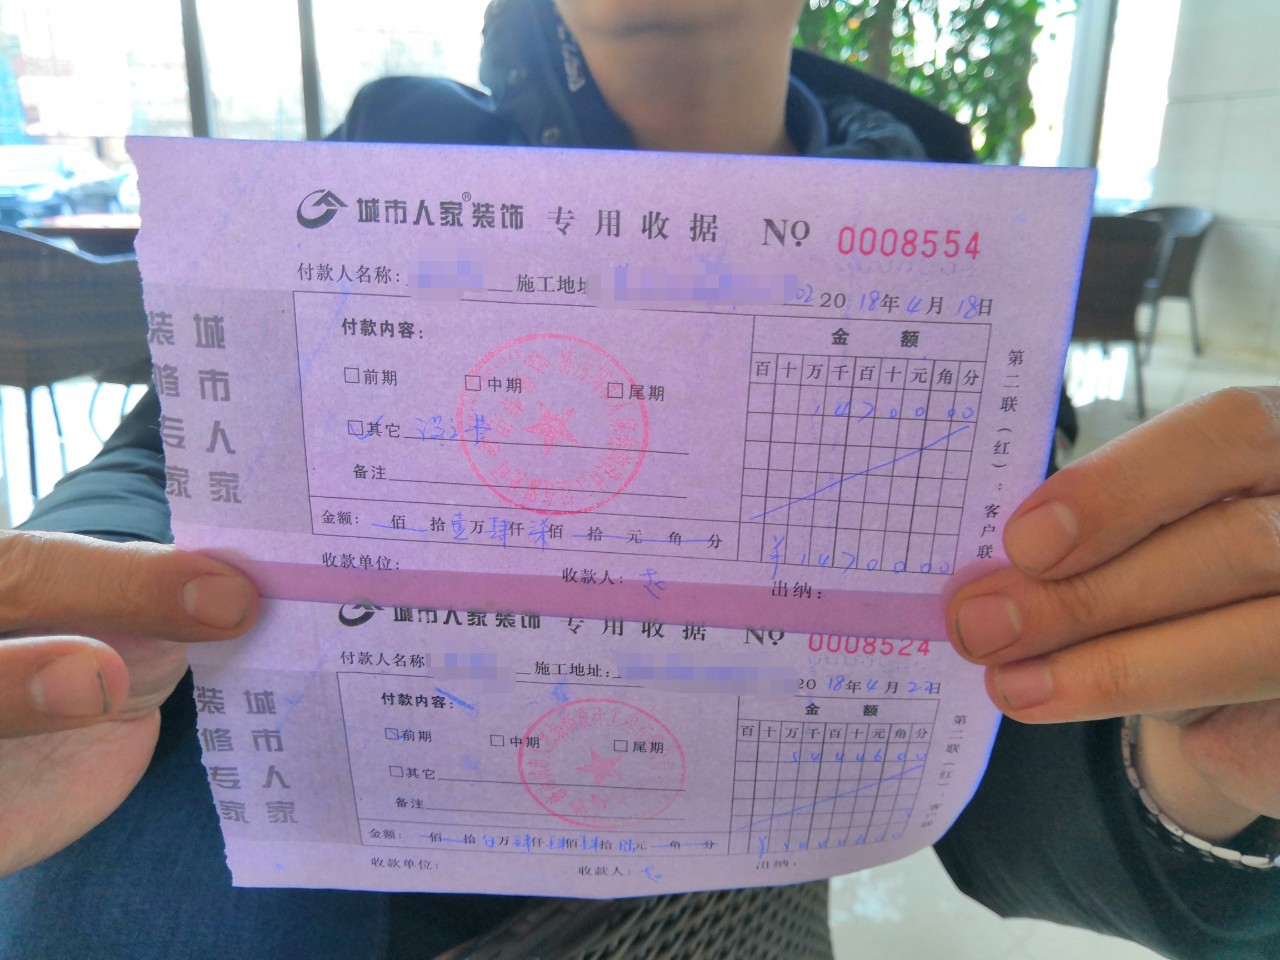 城市人家装饰® 专用收据 No 0008554
付款人名称: 施工地址 02 2018年4月18日
付款内容:
金额
百十万千百十元角分
□前期 □中期 □尾期
1470000
☑其它 设计费
备注
金额: 佰 拾壹万肆仟柒佰 拾 元 角 分
¥1470000
收款单位: 收款人: 出纳:
第二联(红):客户联
装城
修市
专人
家家
城市人家装饰 专用收据 No 0008524
付款人名称 施工地址: 2018年4月22日
付款内容:
金额
百十万千百十元角分
☑前期 □中期 □尾期
□其它
备注
金额: 佰 拾 万 仟 佰 拾 元 角 分
收款单位: 收款人: 出纳:
第二联(红):客户联
装城
修市
专人
家家